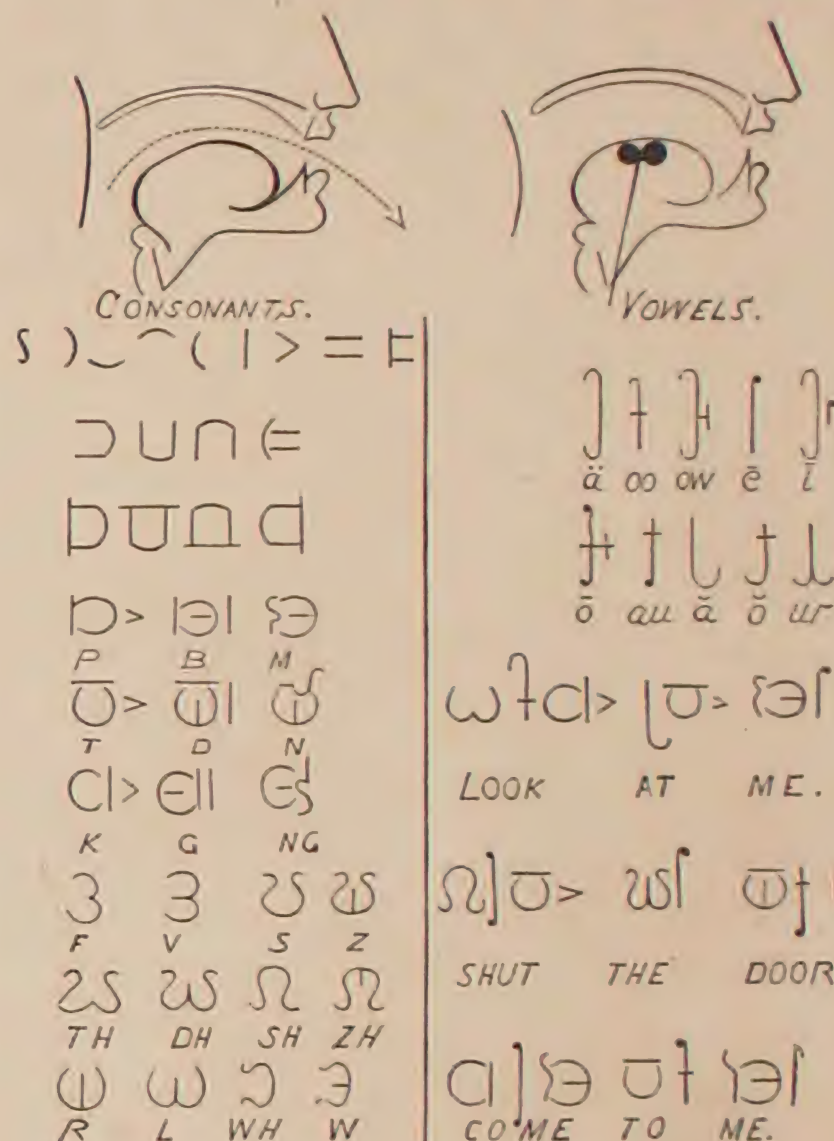 CONSONANTS.
P B M
T D N
K G NG
F V S Z
TH DH SH ZH
R L WH W
VOWELS.
ä oo ow ē ī
ō au ă ŏ ur
LOOK AT ME.
SHUT THE DOOR
COME TO ME.